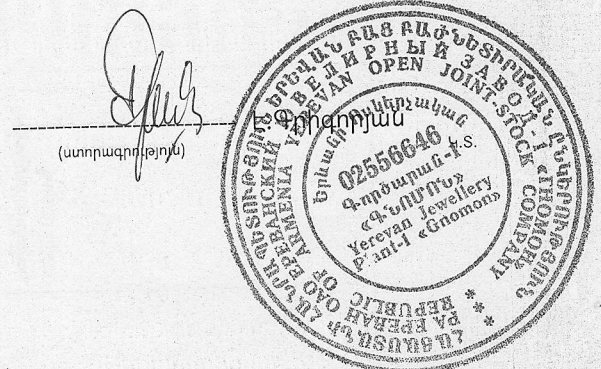 Է Գրիգորյան
(ստորագրություն)
Կ.Տ.
ՀԱՅԱՍՏԱՆԻ ՀԱՆՐԱՊԵՏՈՒԹՅՈՒՆ ԵՐԵՎԱՆ ԲԱՑ ԲԱԺՆԵՏԻՐԱԿԱՆ ԸՆԿԵՐՈՒԹՅՈՒՆ
РА ЕРЕВАН ОАО ЕРЕВАНСКИЙ ЮВЕЛИРНЫЙ ЗАВОД-1 «ГНОМОН»
REPUBLIC OF ARMENIA YEREVAN OPEN JOINT-STOCK COMPANY
Երևանի ոսկերչական
02556646
Գործարան-1
«ԳՆՈՄՈՆ»
Yerevan Jewellery
Plant-1 «Gnomon»